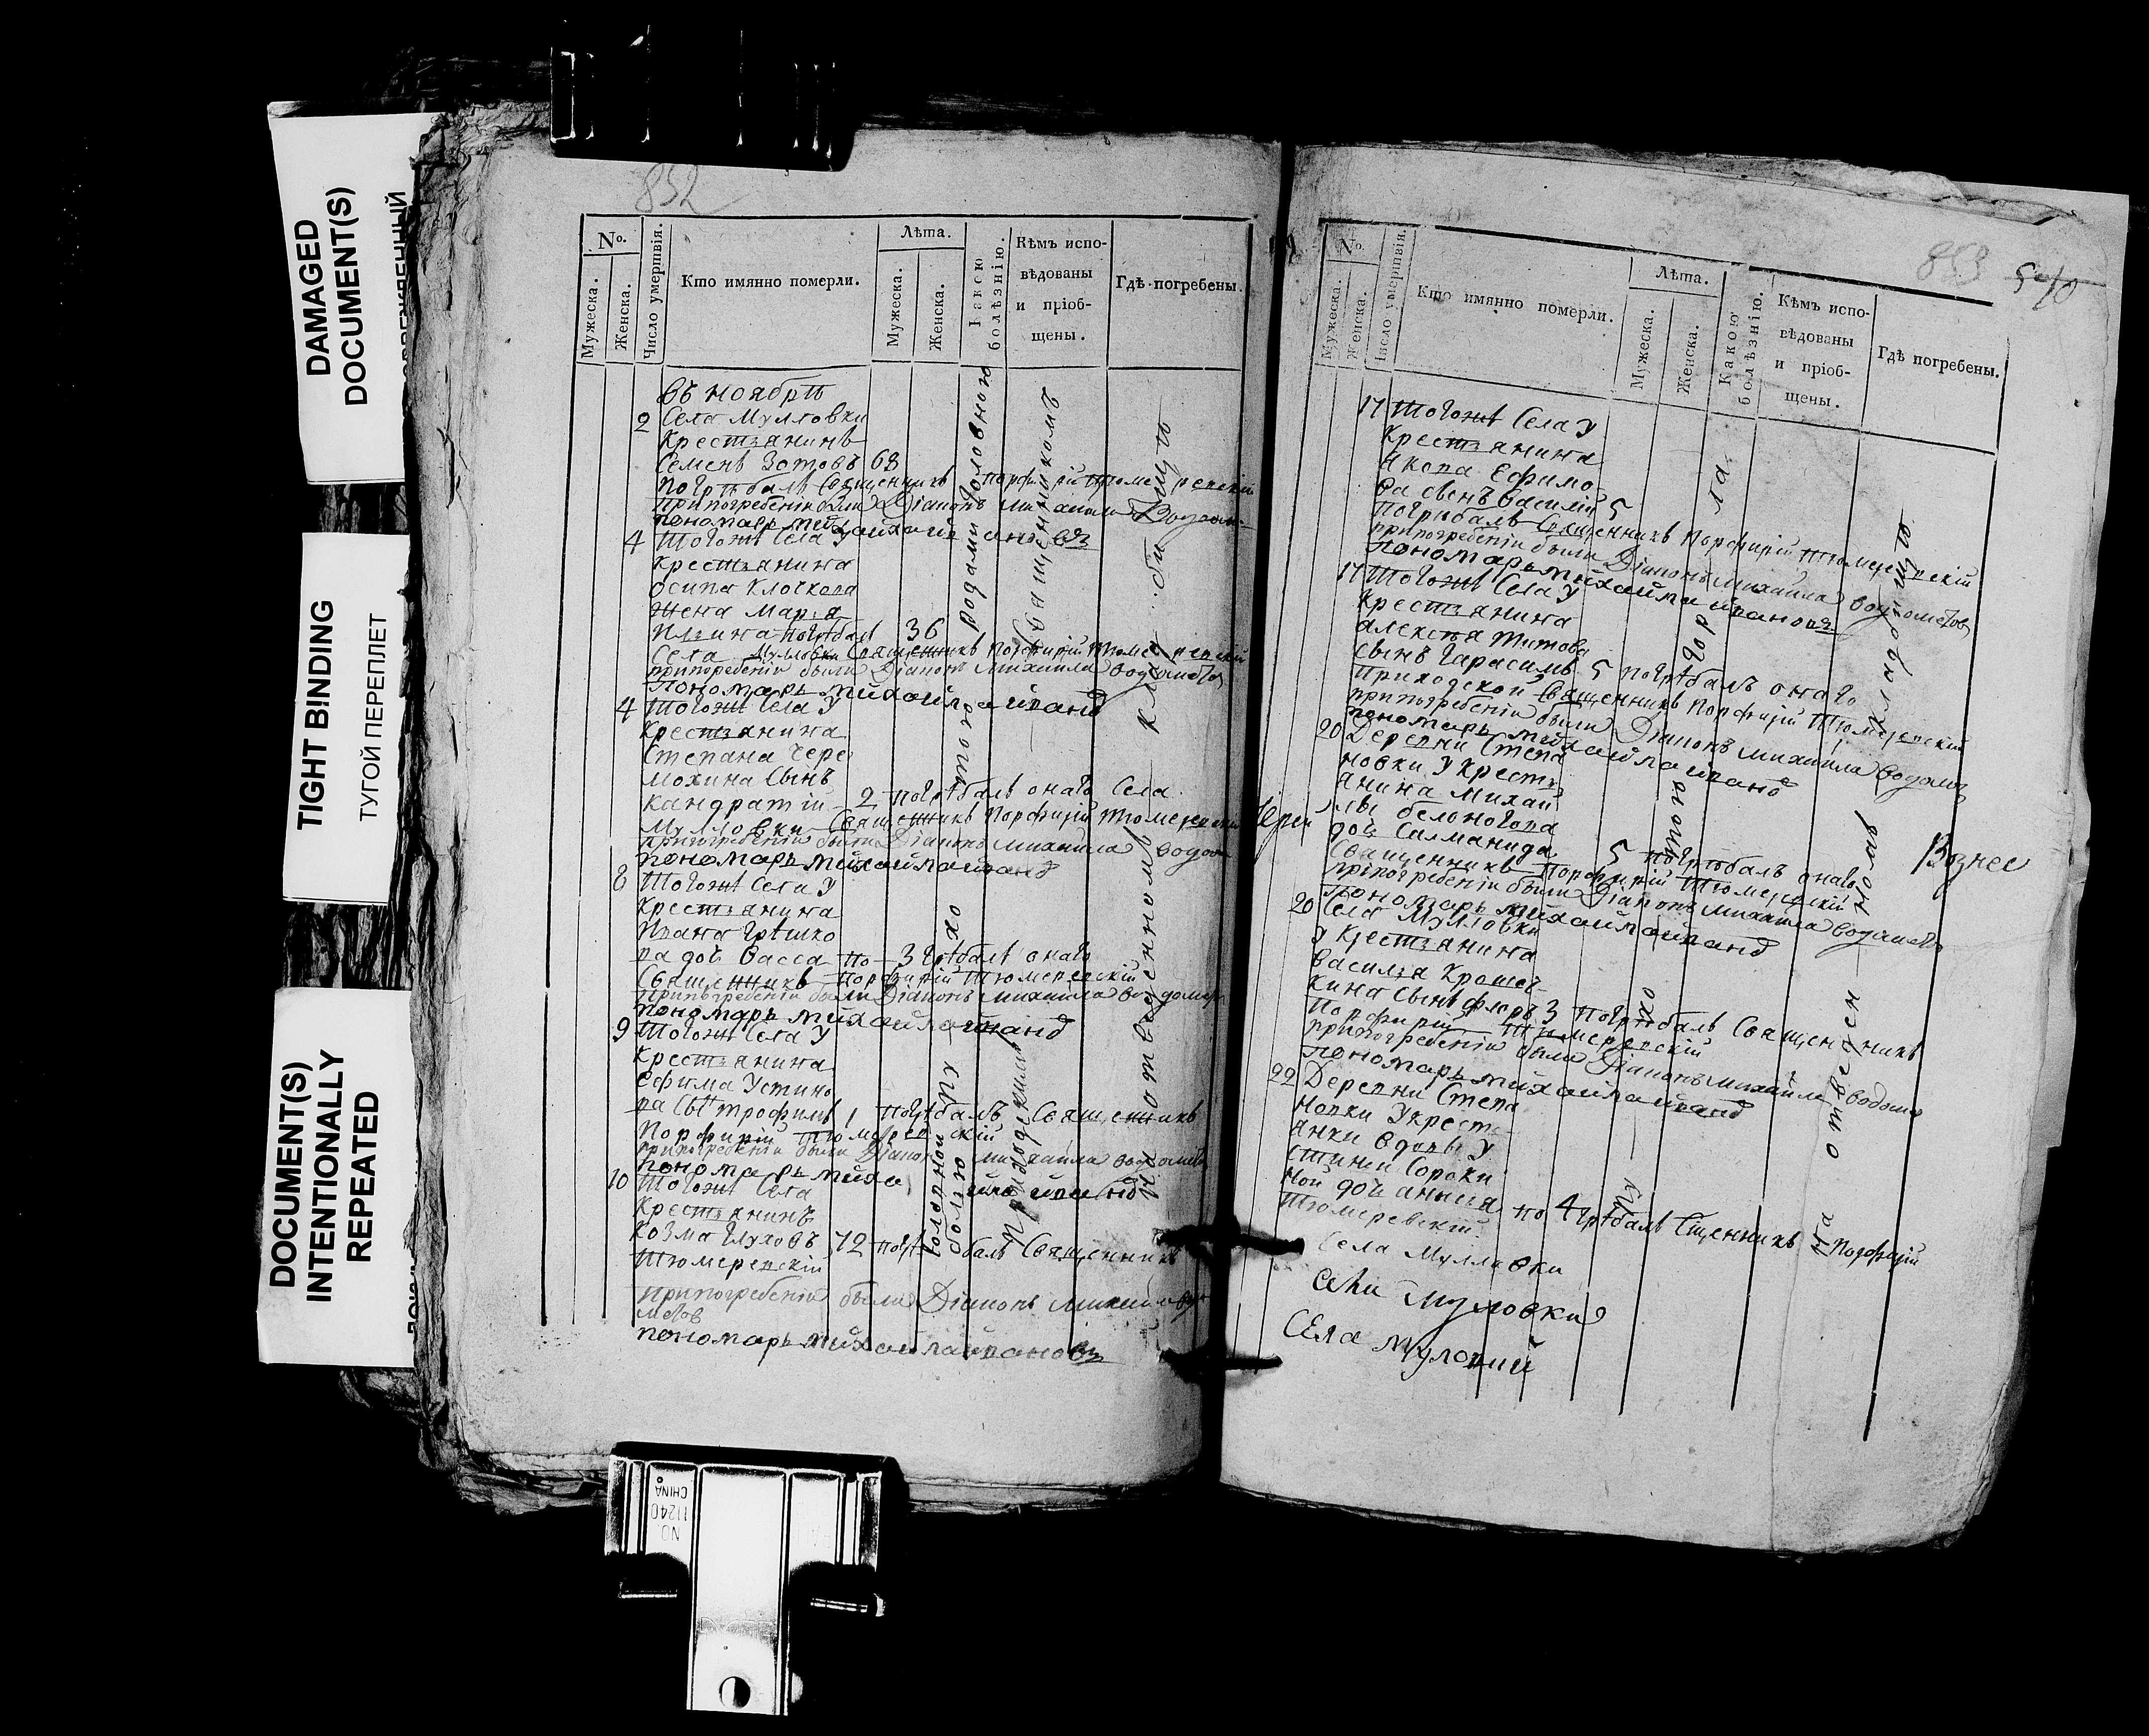 DAMAGED
DOCUMENT(S)
TIGHT BINDING
ТУГОЙ ПЕРЕПЛЕТ
DOCUMENT(S)
INTENTIONALLY
REPEATED
852
No.
Мужеска.
Женска.
Число умертвія.
Кто имянно померли.
Лѣта.
Мужеска.
Женска.
Какою болѣзнію.
Кѣмъ испо-
вѣдованы
и пріоб-
щены.
Гдѣ погребены.
въ ноябрѣ
2 Села Мулловки
крестьянинъ
Семенъ Зотовъ 68
погрѣбалъ Священникъ Порфирій Тюмеревскій
припогребеніи были Діаконъ михаила
пономарь михайла ивановъ
4 Тогожъ Села У
крестьянина
осипа Клочкова
жена Марья
Ильина погрѣбалъ 36
Села Мулловки Священникъ Порфирій Тюмеревскій
припогребеніи были Діаконъ михаила водометов
пономарь михайла иванов
4 Тогожъ Села У
крестьянина
Степана Чере
мохина Сынъ
кандратій 2 погрѣбалъ онаго Села
Мулловки Священникъ Порфирій Тюмеревскій
припогребеніи были Діаконъ михаила водом
пономарь михайла иванов
8 Тогожъ Села У
крестьянина
Ивана Грѣшко
ва дочь Васса по 3 грѣбалъ онаго
Священникъ Порфирій Тюмеревскій
припогребеніи были Діаконъ михаила водомет
пономарь михайла иванов
9 Тогожъ Села У
крестьянина
Ефима Устино
ва Сынъ трофимъ 1 погрѣбалъ Священникъ
Порфирій Тюмеревскій
припогребеніи были Діаконъ михаила водомет
пономарь михайла иванов
10 Тогожъ Села
крестьянинъ
Козма Глуховъ 72 погрѣбалъ Священникъ
Тюмеревскій
припогребеніи были Діаконъ михаила водо
метов
пономарь михайла ивановъ
родами головною
болью
Священникомъ
приходскимъ
на отведенномъ кладбищѣ
853
No.
Мужеска.
Женска.
Число умертвія.
Кто имянно померли.
Лѣта.
Мужеска.
Женска.
Какою болѣзнію.
Кѣмъ испо-
вѣдованы
и пріоб-
щены.
Гдѣ погребены.
17 Тогожъ Села У
крестьянина
Якова Ефимо
ва сынъ василій 5
погрѣбалъ Священникъ Порфирій Тюмеревскій
припогребеніи были Діаконъ михаила водометов
пономарь михайла ивановъ
17 Тогожъ Села У
крестьянина
алексѣя титова
сынъ гарасимъ 5 погрѣбалъ онаго
приходской Священникъ Порфирій Тюмеревскій
припогребеніи были Діаконъ михаила водомет
пономарь михайла иванов
20 Деревни Степа
новки У крестъ
янина Михай
лы белоногова
дочь Саламанида 5 погрѣбалъ онаго
Священникъ Порфирій Тюмеревскій
припогребеніи были Діаконъ михаила водомет
пономарь михайла иванов
20 Села Мулловки
У крестьянина
василья Крошеч
кина Сынъ флоръ 3 погрѣбалъ Священникъ
Порфирій Тюмеревскій
припогребеніи были Діаконъ михаила водоме
пономарь михайла иванов
22 Деревни Степа
новки У кресть
янки вдовы У
стиньи Сороки
ной дочь анисія по 4 грѣбалъ Сщенникъ Порфирій
Тюмеревскій
Села Мулловки
Села Муловки
СЕла Муловки
Іерей
Вознес
на отведенномъ кладбищѣ
NO.
11240
CHINA